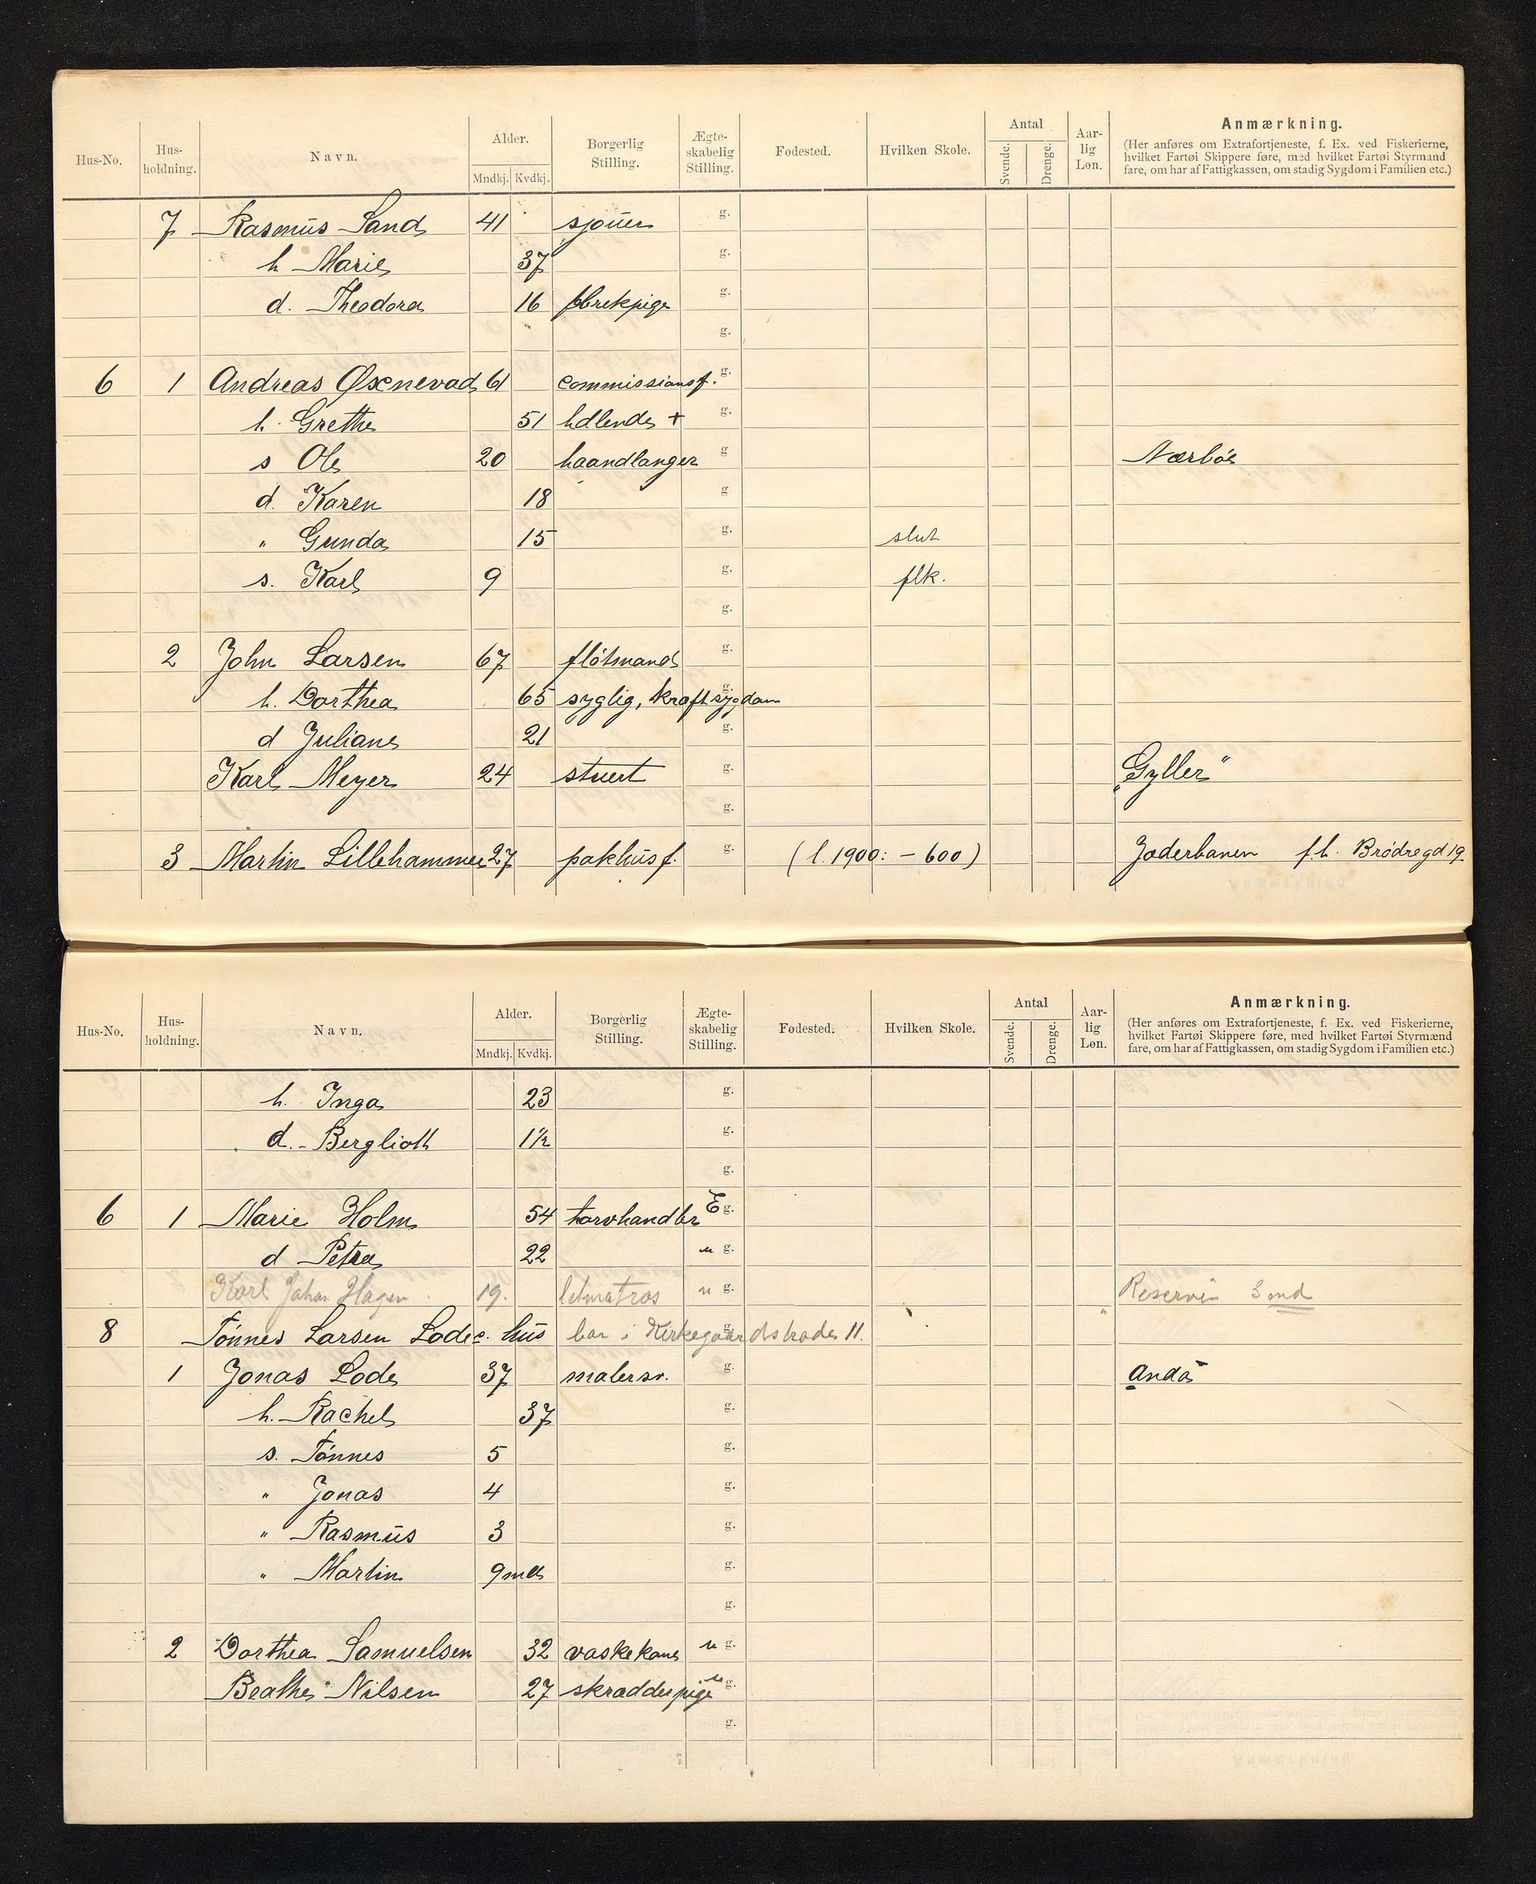 Hus-No. Hus-holdning. Navn. Alder. Mndkj. Kvdkj. Borgerlig Stilling. Ægte-skabelig Stilling. Fødested. Hvilken Skole. Antal Svende. Drenge. Aar-lig Løn. Anmærkning.
(Her anføres om Extrafortjeneste, f. Ex. ved Fiskerierne,
hvilket Fartøi Skippere føre, med hvilket Fartøi Styrmænd
fare, om har af Fattigkassen, om stadig Sygdom i Familien etc.)
7 Rasmus Sand 41 sjouer g.
h. Marie 37 g.
d. Theodora 16 fbrekpige g.
g.
6 1 Andreas Øxnevad 61 commissionsf. g.
h. Grethe 51 hdlende + g.
s Ole 20 haandlanger g Nærbø
d. Karen 18 g.
" Gunda 15 g. slut
s. Karl 9 g. flk.
g.
2 John Larsen 67 fløtmand g.
h. Dorthea 65 syglig, kræftsygdom g.
d Juliane 21 g.
Karl Meyer 24 stuert g. "Gyller"
g.
3 Martin Lillehammer 27 pakhusf. g. (l. 1900: - 600) Jæderbanen f.h. Brødregd 19
Hus-No. Hus-holdning. Navn. Alder. Mndkj. Kvdkj. Borgerlig Stilling. Ægte-skabelig Stilling. Fødested. Hvilken Skole. Antal Svende. Drenge. Aar-lig Løn. Anmærkning.
(Her anføres om Extrafortjeneste, f. Ex. ved Fiskerierne,
hvilket Fartøi Skippere føre, med hvilket Fartøi Styrmænd
fare, om har af Fattigkassen, om stadig Sygdom i Familien etc.)
h. Inga 23 g.
d. Bergliott 1½ g.
g.
6 1 Marie Holm 54 torvhandler E g.
d Petra 22 u g.
Karl Johan Hagen 19. letmatros u g. Reservin 3md
8 Tønnes Larsen Lode e. hus bor i Kirkegaardsstrade 11. g.
1 Jonas Lode 37 malersv. g. Anda
h. Rachel 37 g.
s. Tønnes 5 g.
" Jonas 4 g.
" Rasmus 3 g.
" Martin 9 md g.
g.
2 Dorthea Samuelsen 32 vaskekone u g.
Beathe Nilsen 27 skrædderpige u g.
g.